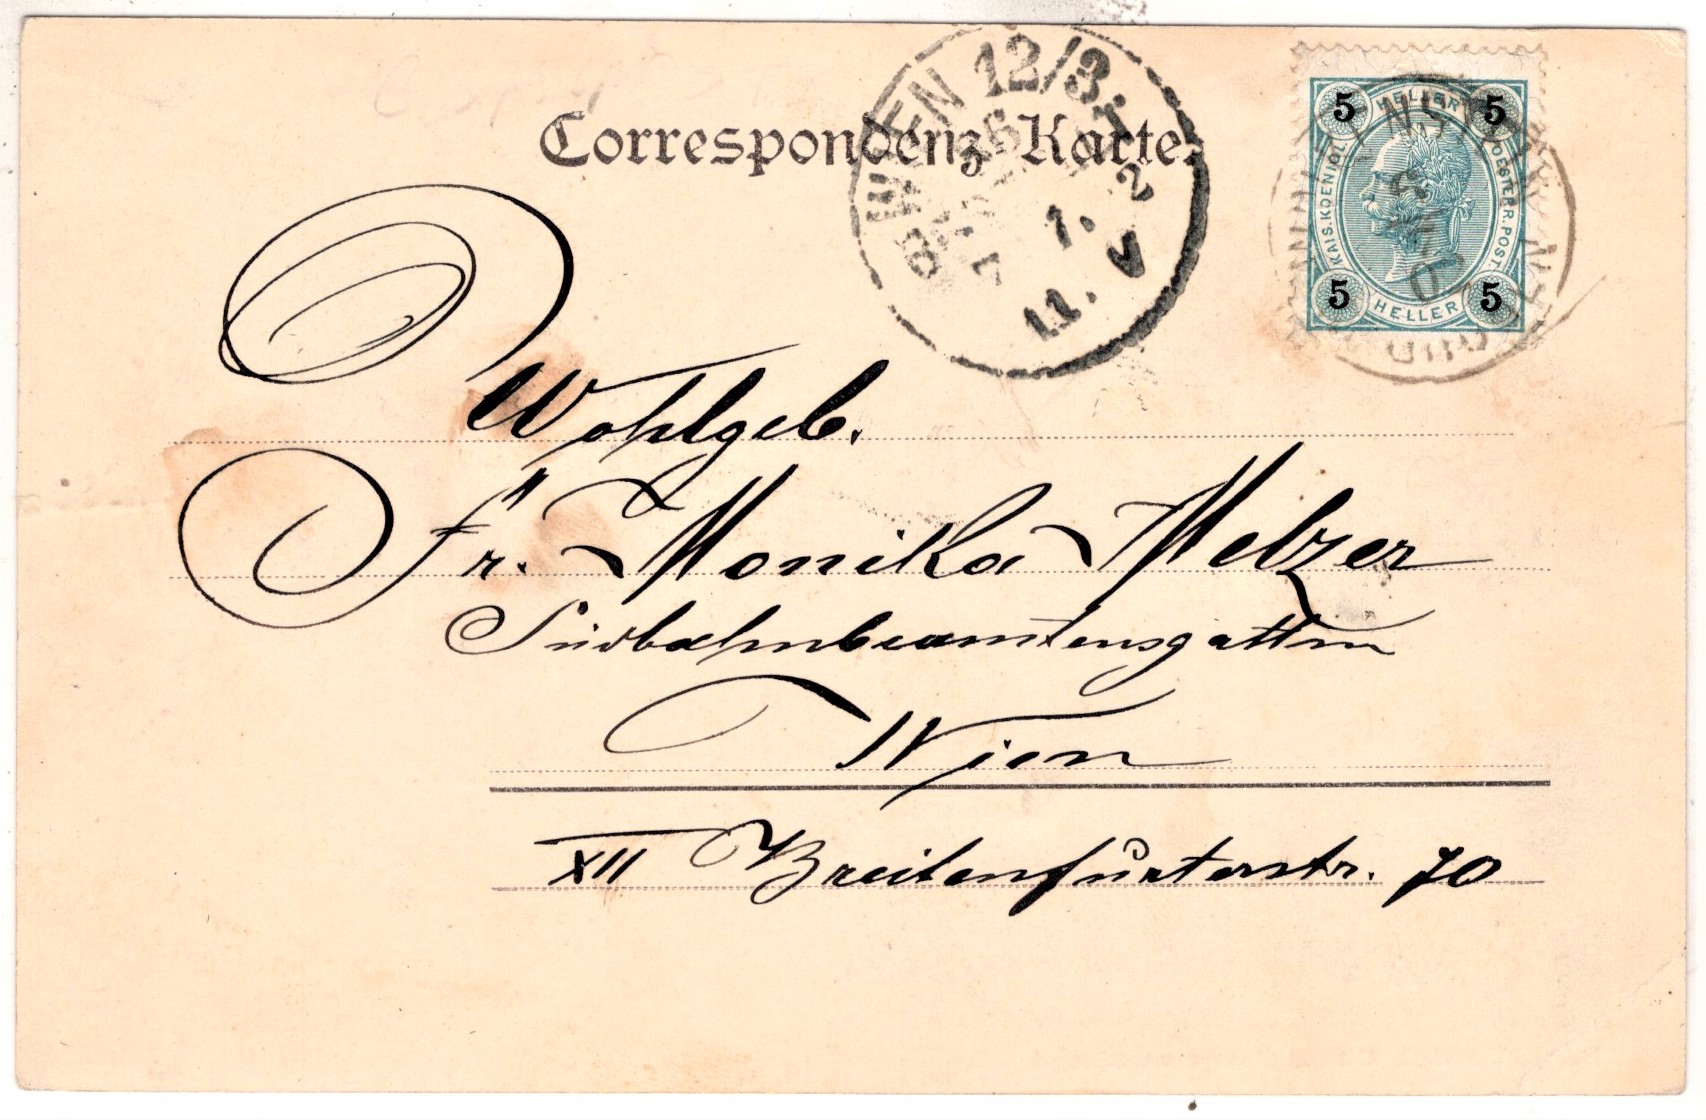 Correspondenz-Karte.
WIEN 12/3.
BESTELLT
7. 1. 2
11. V
5 HELLER 5
KAIS. KOENIGL. OESTERR. POST.
5 HELLER 5
Wohlgeb.
Fr. Monika Melzer
Südbahnbeamtensgattin
Wien
XII Breitenfurterstr. 70